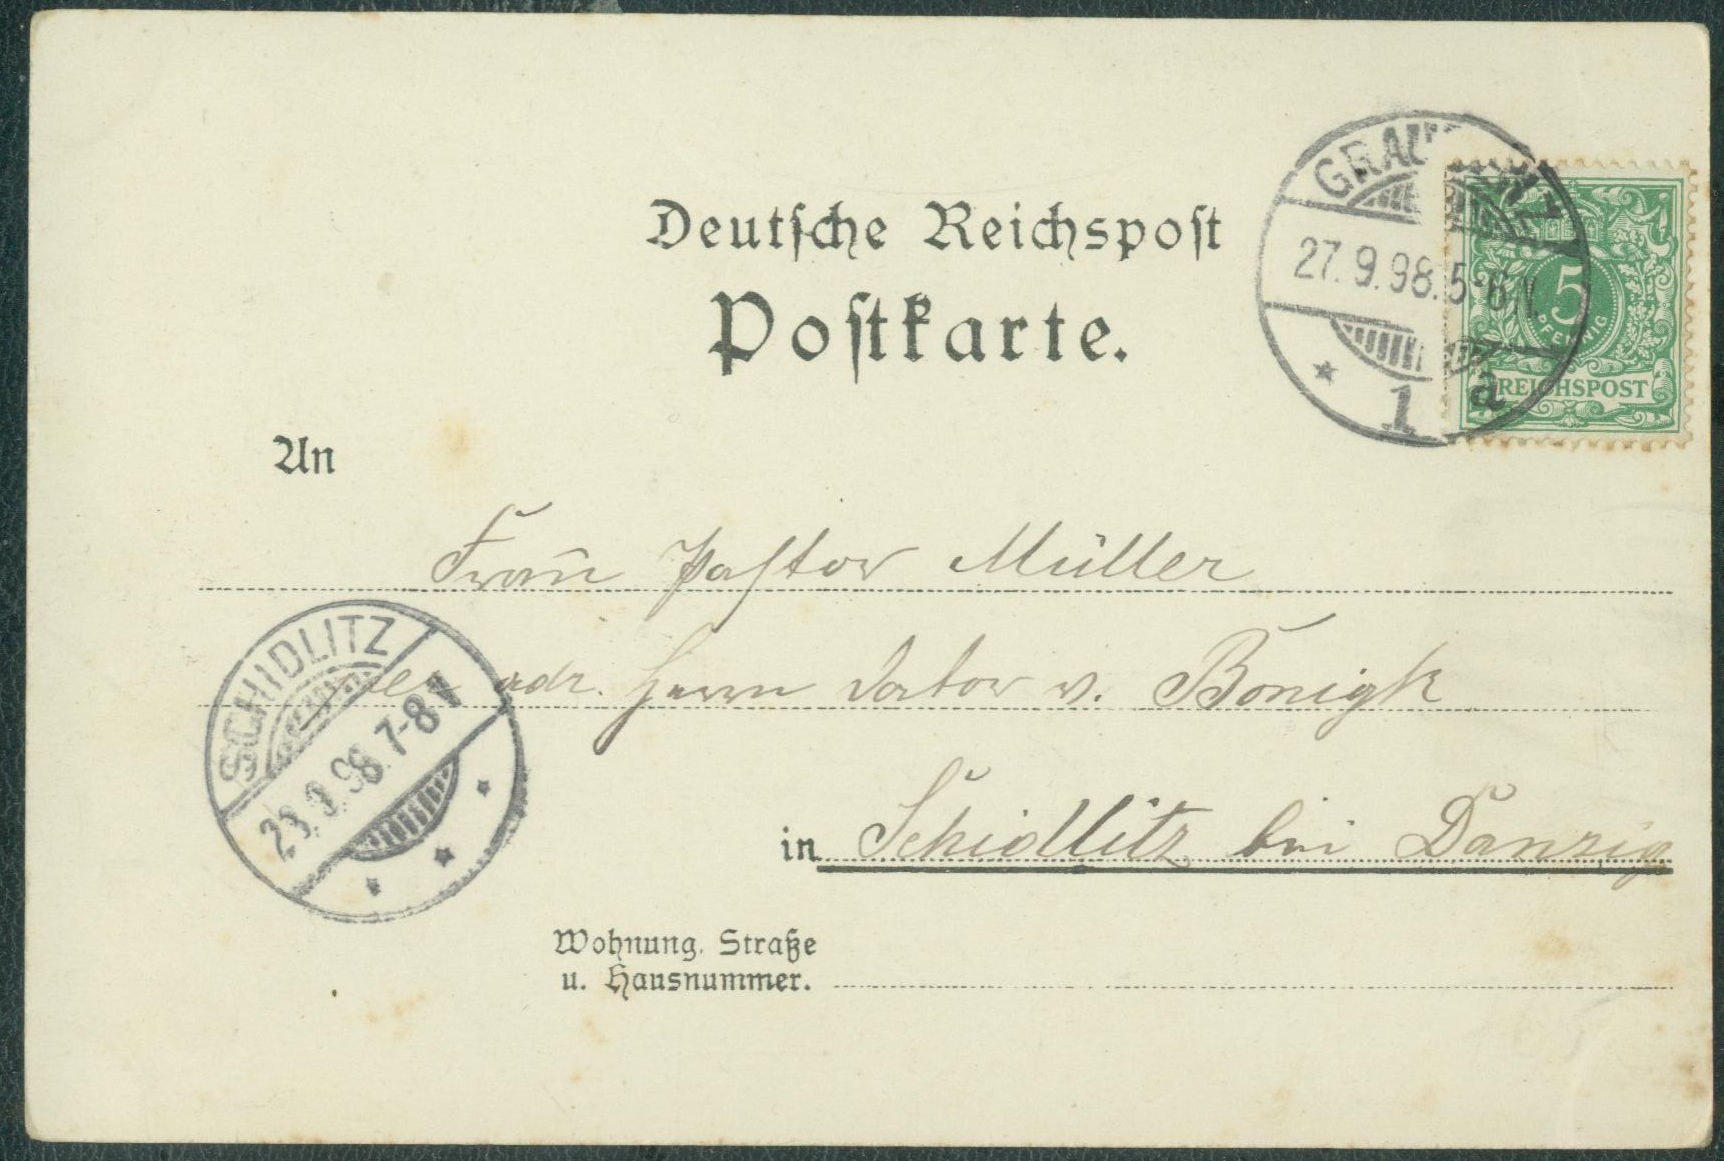 Deutsche Reichspost
Postkarte.
GRAUDENZ
27.9.98.5-6N.
* 1 a
5
PFENNIG
REICHSPOST
An
Frau Pastor Müller
adr. Herrn Doctor v. Bönigk
SCHIDLITZ
28.9.98.7-8V
in Schidlitz bei Danzig
Wohnung, Straße
u. Hausnummer.